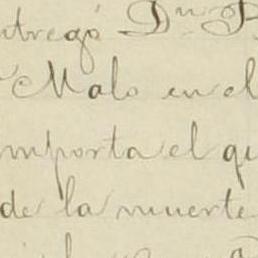 ntregó Dn P
Malo en el
importa el qu
de la muerte